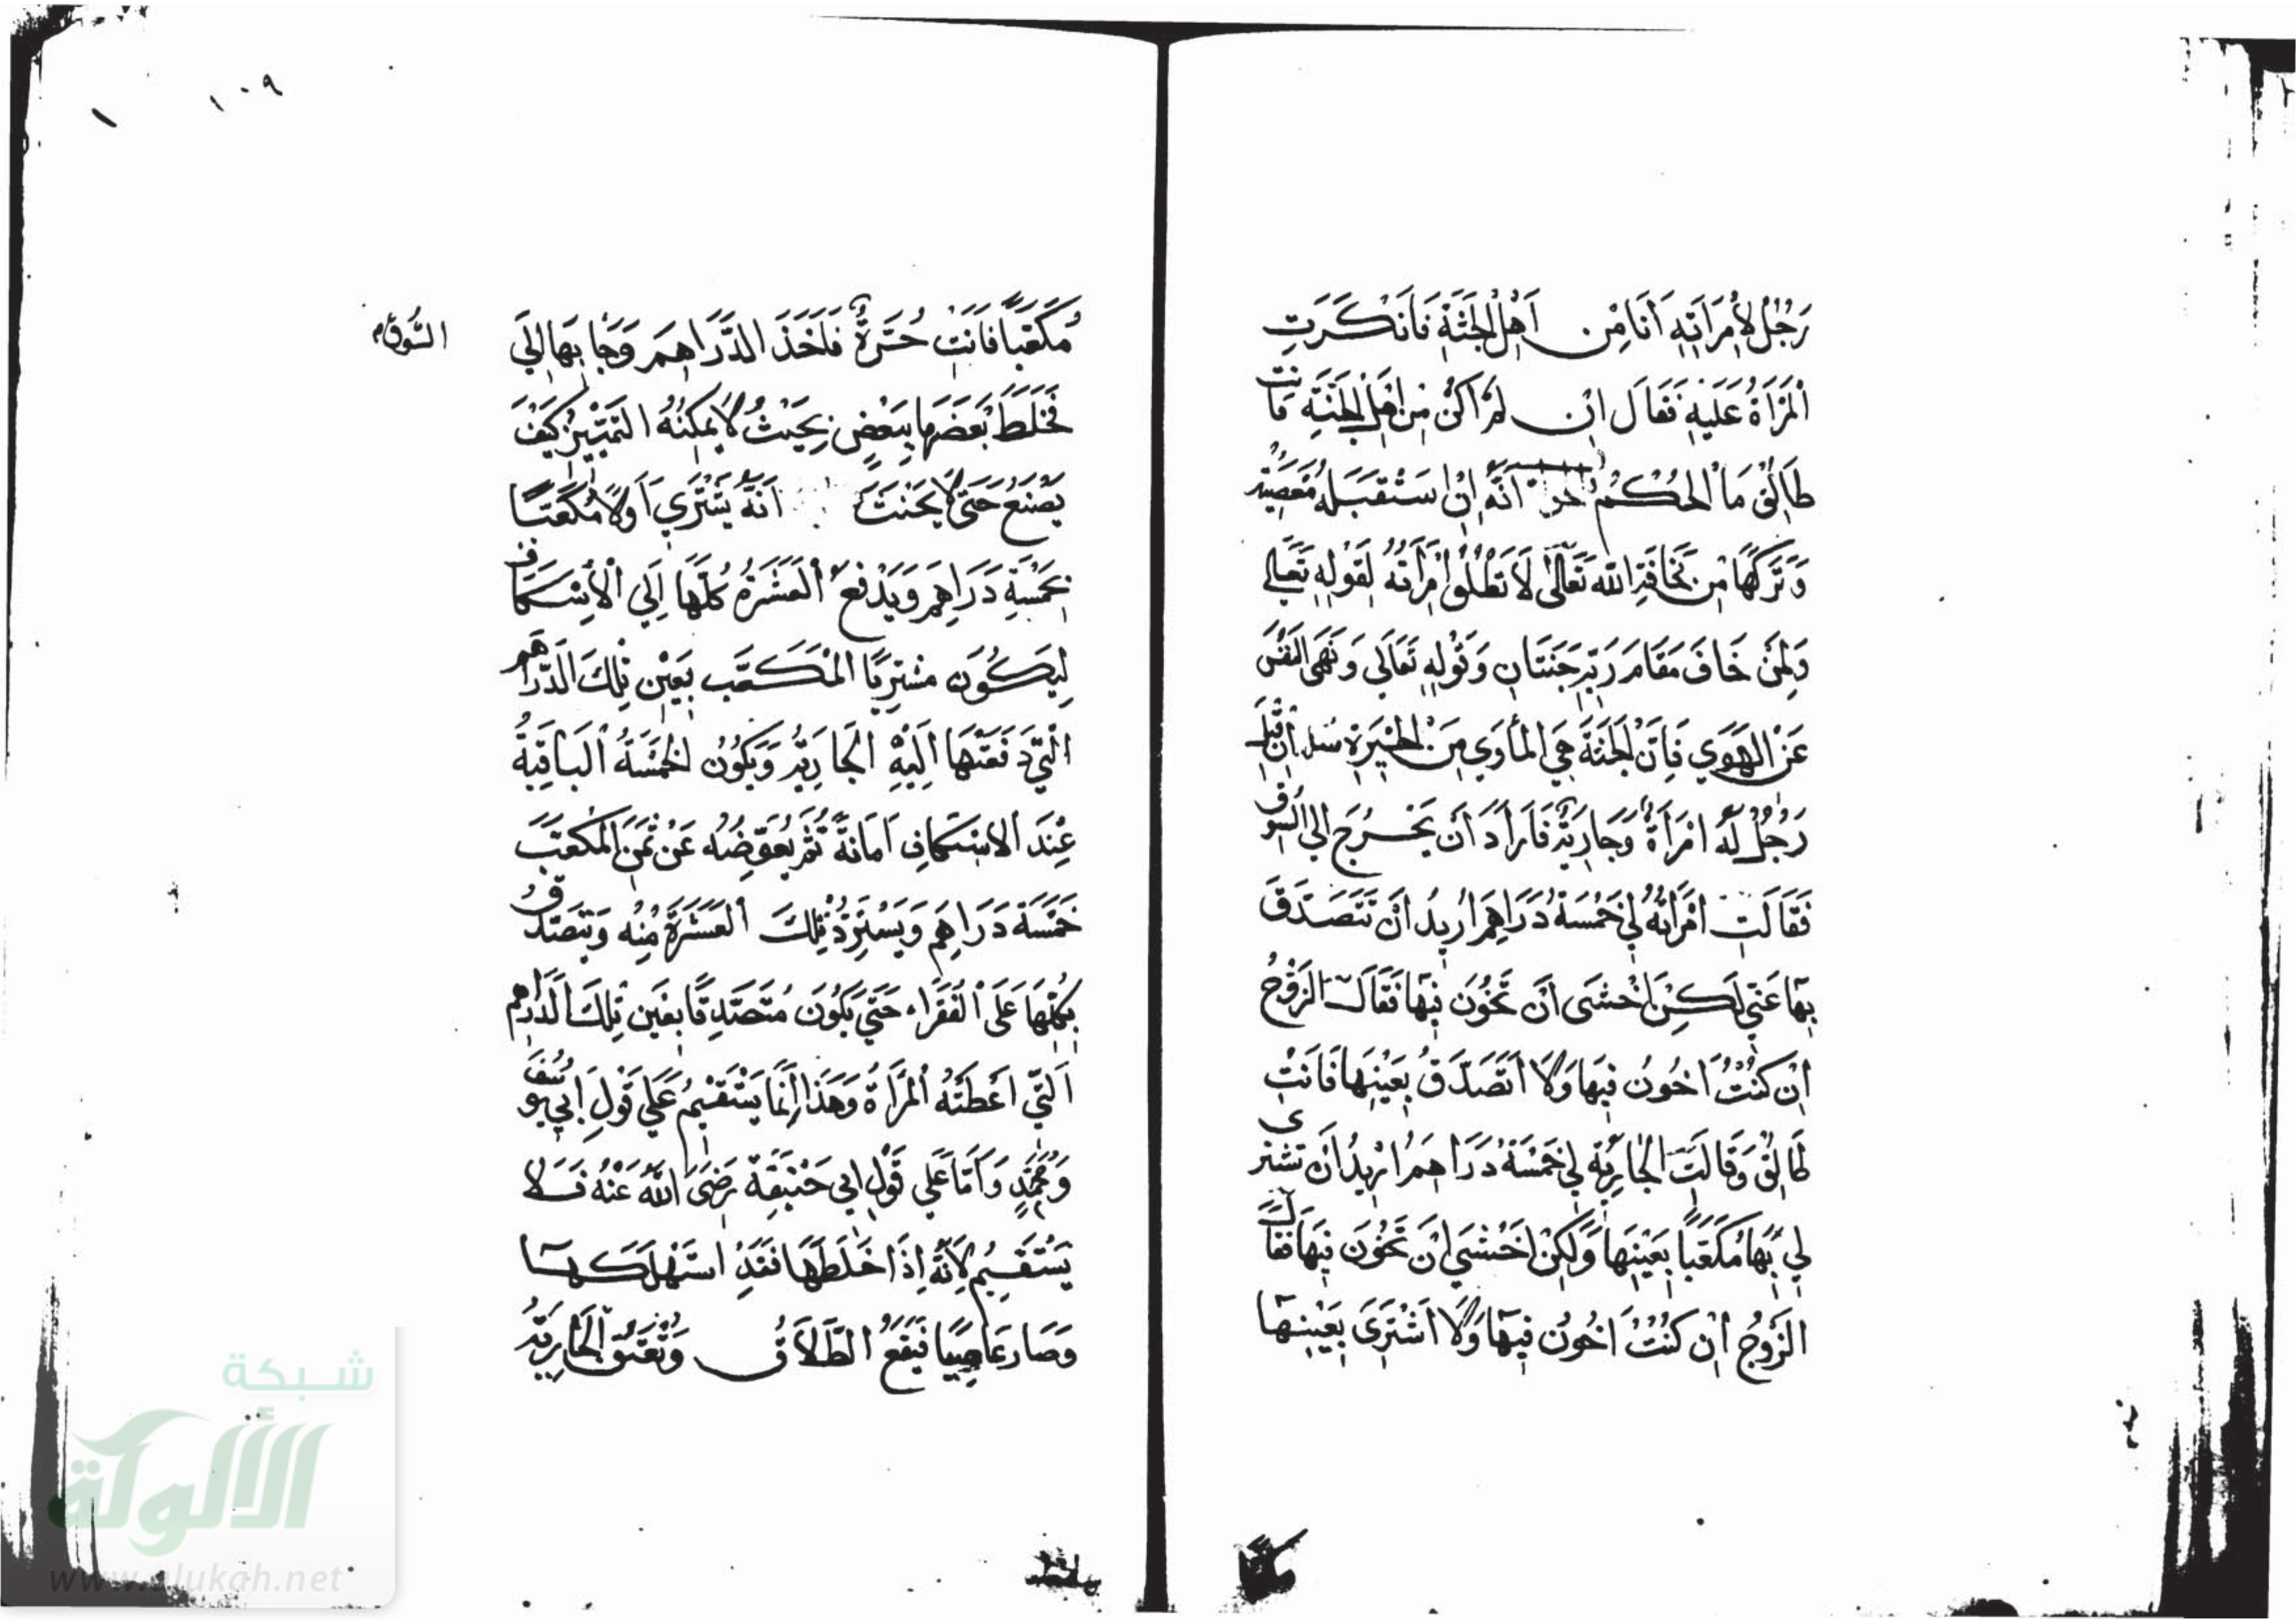 رَجُلٌ لِأُمْرَاَتِهِ اَنَا مِن اَهْلِ الْجَنَّةِ فَاَنْكَرَتِ
الْمَرْاَةُ عَلَيْهِ فَقَالَ اِن لَمْ اَكُنْ مِنْ اَهْلِ الْجَنَّةِ فَاَنْتِ
طَالِقٌ مَا الْحُكْمُ اَنَّهُ اِنْ اسْتَقْبَلَهُ مَعْصِيَة
وَتَرَكَهَا مِنْ مَخَافَةِ اللهِ تَعَالَى لَا تَطْلُقُ امْرَاَتُهُ لِقَوْلِهِ تَعَالَى
وَلِمَنْ خَافَ مَقَامَ رَبِّهِ جَنَّتَانِ وَقَوْلِهِ تَعَالَى وَنَهَى النَّفْسَ
عَنْ الْهَوَى فَاِنَّ الْجَنَّةَ هِيَ الْمَأْوَى مِنَ
رَجُلٌ لَهُ امْرَأَةٌ وَجَارِيَةٌ فَاَرَادَ اَنْ يَخْرُجَ اِلَى السُّوْقِ
فَقَالَتِ امْرَاَتُهُ لِي خَمْسَةُ دَرَاهِمَ اُرِيدُ اَنْ تَتَصَدَّقَ
بِهَا عَنِّي لَكِنْ اَخْشَى اَنْ تَخُوْنَ فِيْهَا فَقَالَ الزَّوْجُ
اِنْ كُنْتُ اَخُونُ فِيْهَا وَلَا اَتَصَدَّقُ بِعَيْنِهَا فَاَنْتِ
طَالِقٌ وَقَالَتِ الْجَارِيَةُ لِي خَمْسَةُ دَرَاهِمَ اُرِيْدُ اَنْ تَشْتَرِى
لِي بِهَا مُكَعَّبًا بِعَيْنِهَا وَلَكِنْ اَخْشَى اَنْ تَخُوْنَ فِيْهَا فَقَالَ
الزَّوْجُ اِنْ كُنْتُ اَخُونُ فِيْهَا وَلَا اَشْتَرِى بِعَيْنِهَا
مُكَعَّبًا فَاَنْتِ حُرَّةٌ فَاَخَذَ الدَّرَاهِمَ وَجَا بِهَا اِلَى
السُّوقِ
فَخَلَطَ بَعْضَهَا بِبَعْضٍ بِحَيْثُ لَا يُمْكِنُهُ التَّمْيِيْزُ كَيْفَ
يَصْنَعُ حَتَّى لَا يَحْنَثَ اَنَّهُ يَشْتَرِي اَوَّلًا مُكَعَّبًا
بِخَمْسَةِ دَرَاهِمَ وَيَدْفَعُ الْعَشَرَةَ كُلَّهَا اِلَى الْاِسْكَافِ
لِيَكُوْنَ مُشْتَرِيًا الْمُكَعَّب بِعَيْنِ تِلْكَ الدَّرَاهِم
الَّتِي دَفَعَتْهَا اِلَيْهِ الْجَارِيَةُ وَيَكُوْنُ الْخَمْسَةُ الْبَاقِيَةُ
عِنْدَ الْاِسْكَافِ اَمَانَةً ثُمَّ يُعَوِّضُهُ عَنْ ثَمَنِ الْمُكَعَّبِ
خَمْسَةَ دَرَاهِمَ وَيَسْتَرِدُّ تِلْكَ الْعَشَرَةَ مِنْهُ وَيَتَصَدَّقُ
بِكُلِّهَا عَلَى الْفُقَرَاءِ حَتَّى يَكُوْنَ مُتَصَدِّقًا بِعَيْنِ تِلْكَ الدَّرَاهِم
الَّتِي اَعْطَتْهُ الْمَرْاَةُ وَهَذَا اِنَّمَا يَسْتَقِيْمُ عَلَى قَوْلِ اَبِي يُوسُفَ
وَمُحَمَّدٍ وَاَمَّا عَلَى قَوْلِ اَبِي حَنِيْفَةَ رَضِيَ اللهُ عَنْهُ فَلَا
يَسْتَقِيْمُ لِاَنَّهُ اِذَا خَلَطَهَا فَقَدِ اسْتَهْلَكَهَا
وَصَارَ عَاصِيًا فَيَقَعُ الطَّلَاقُ وَتُعْتَقُ الْجَارِيَةُ
١٠٩
شبكة
الألوكة
www.alukah.net